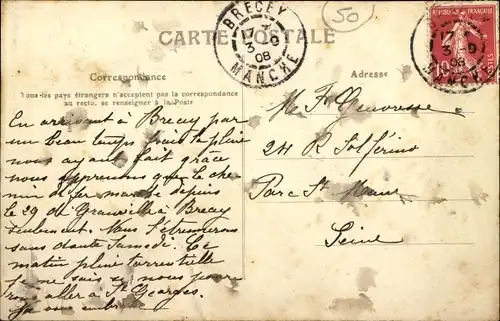 CARTE POSTALE
50
BRECEY
17 3-9 08
MANCHE
BRECEY
17 3-9 08
MANCHE
REPUBLIQUE FRANÇAISE
10
Correspondance
Tous les pays étrangers n'acceptent pas la correspondance
au recto, se renseigner à la Poste
Adresse
En arrivant à Brecey par
un beau temps frais la pluie
nous ayant fait grâce
nous apprenons que le che-
min de fer marche depuis
le 29 de Granville à Brecey
seulement. Nous l'étrennerons
sans doute Samedi. Ce
matin pluie torrentielle
je ne sais si nous pour-
rons aller à St Georges.
Je vous embrasse
M F.
24 R Solferino
Parc St Maur
Seine